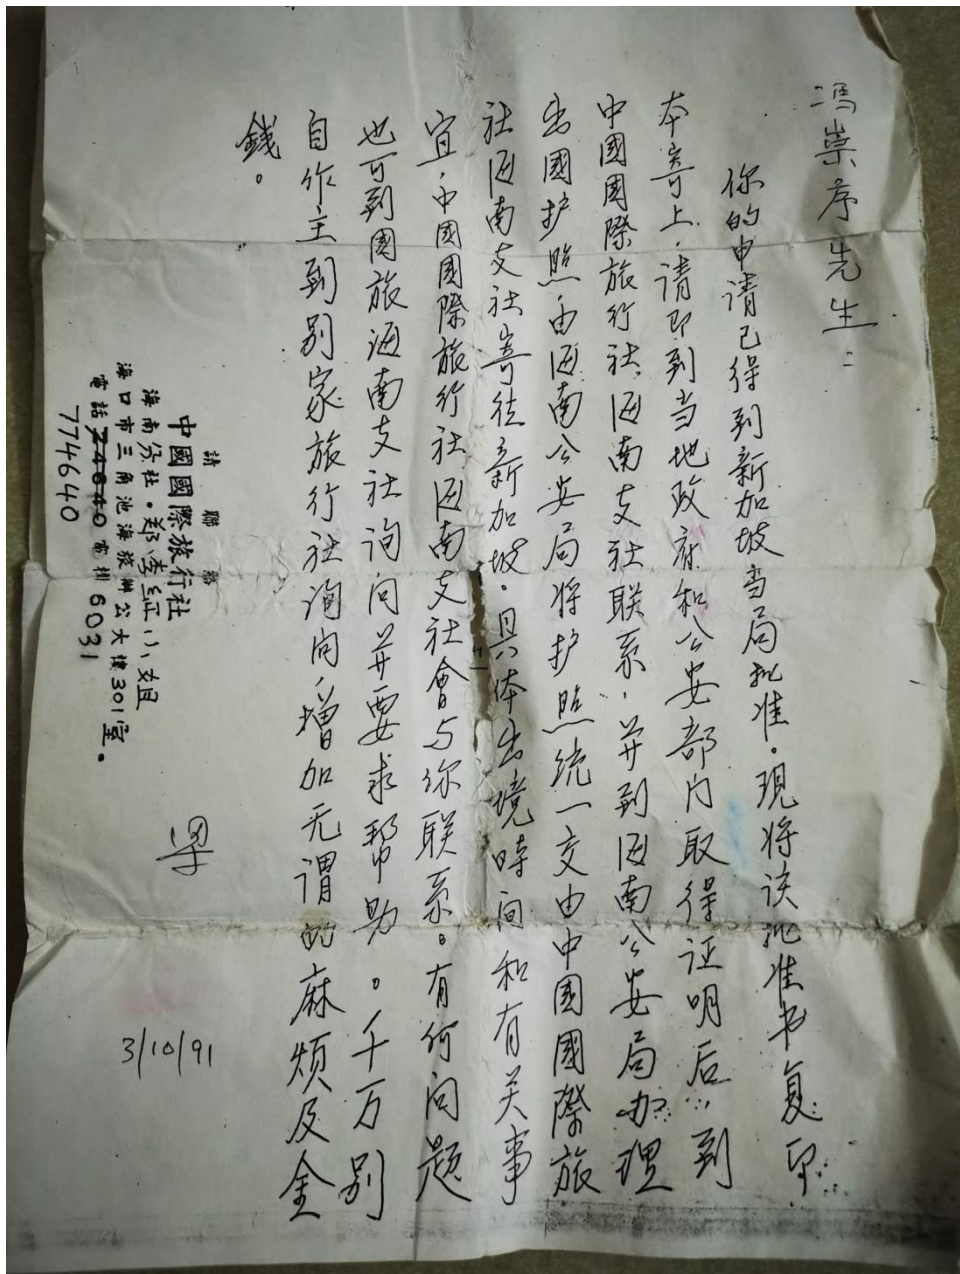 冯崇序先生：
你的申请已得到新加坡当局批准。現将该批准书复印
本寄上，请即到当地政府和公安部门取得证明后，到
中國國際旅行社海南支社联系，并到海南公安局办理
出國护照由海南公安局将护照统一交由中國國際旅
社海南支社寄往新加坡。具体出境時间和有关事
宜，中國國際旅行社海南支社會与你联系。有何问题
也可到國旅海南支社询问并要求帮助。千万别
自作主到别家旅行社询问，增加无谓的麻烦及金
錢。
請聯絡
中國國際旅行社
海南分社。郑李红小姐
海口市三角池海旅辦公大樓301室。
電話24640 6031
774640
梁
3/10/91